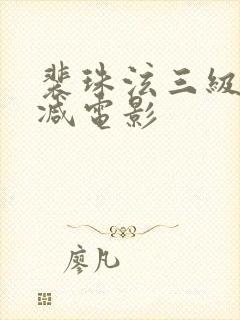 裴珠泫三級
减電影
廖凡